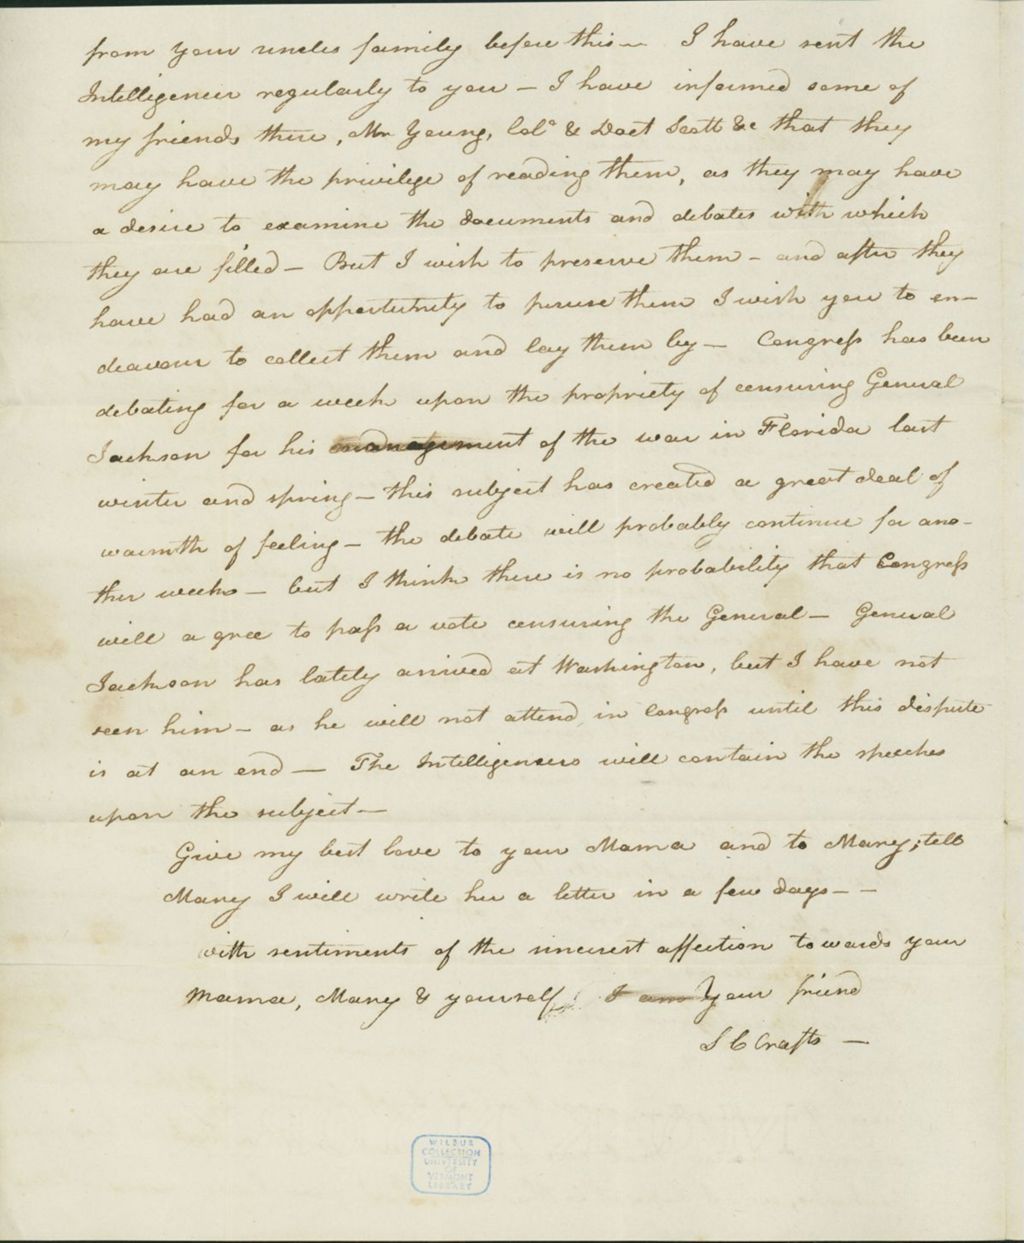 from your uncles family before this — I have sent the
Intelligencer regularly to you — I have informed some of
my friends there, Mr Young, Colº & Doct Scott &c that they
may have the privilege of reading them, as they may have
a desire to examine the documents and debates with which
they are filled — But I wish to preserve them — and after they
have had an opportunity to peruse them I wish you to en-
deavour to collect them and lay them by — Congress has been
debating for a week upon the propriety of censuring General
Jackson for his management of the war in Florida last
winter and spring — this subject has created a great deal of
warmth of feeling — the debate will probably continue for ano-
ther week — but I think there is no probability that Congress
will agree to pass a vote censuring the General — General
Jackson has lately arrived at Washington, but I have not
seen him — as he will not attend in Congress until this dispute
is at an end — The Intelligencers will contain the speeches
upon the subject —
Give my best love to your Mama and to Mary; tell
Mary I will write her a letter in a few days — —
with sentiments of the sincerest affection towards your
Mama, Mary & yourself I am Your friend
S C Crafts —
WILBUR
COLLECTION
UNIVERSITY
OF
VERMONT
LIBRARY